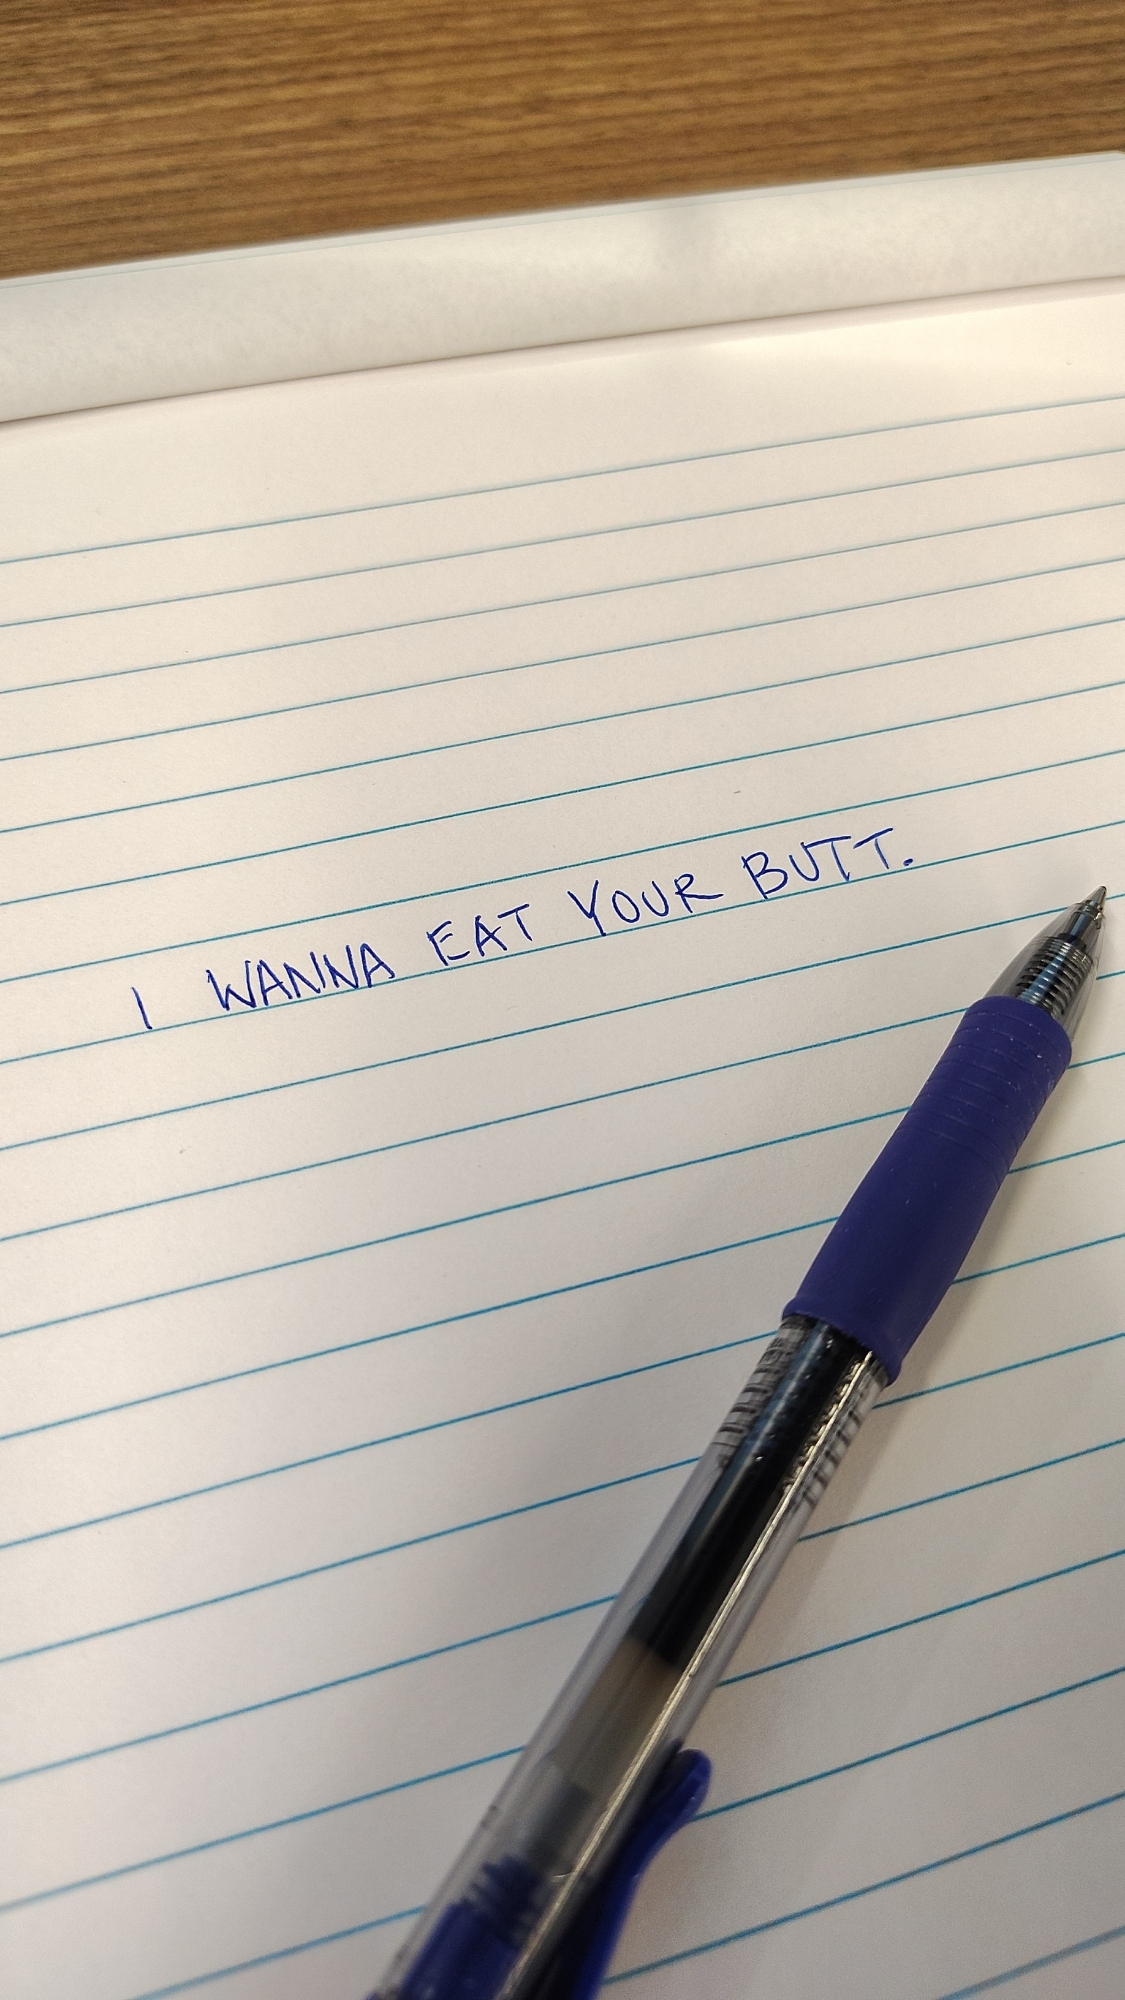 I WANNA EAT YOUR BUTT.